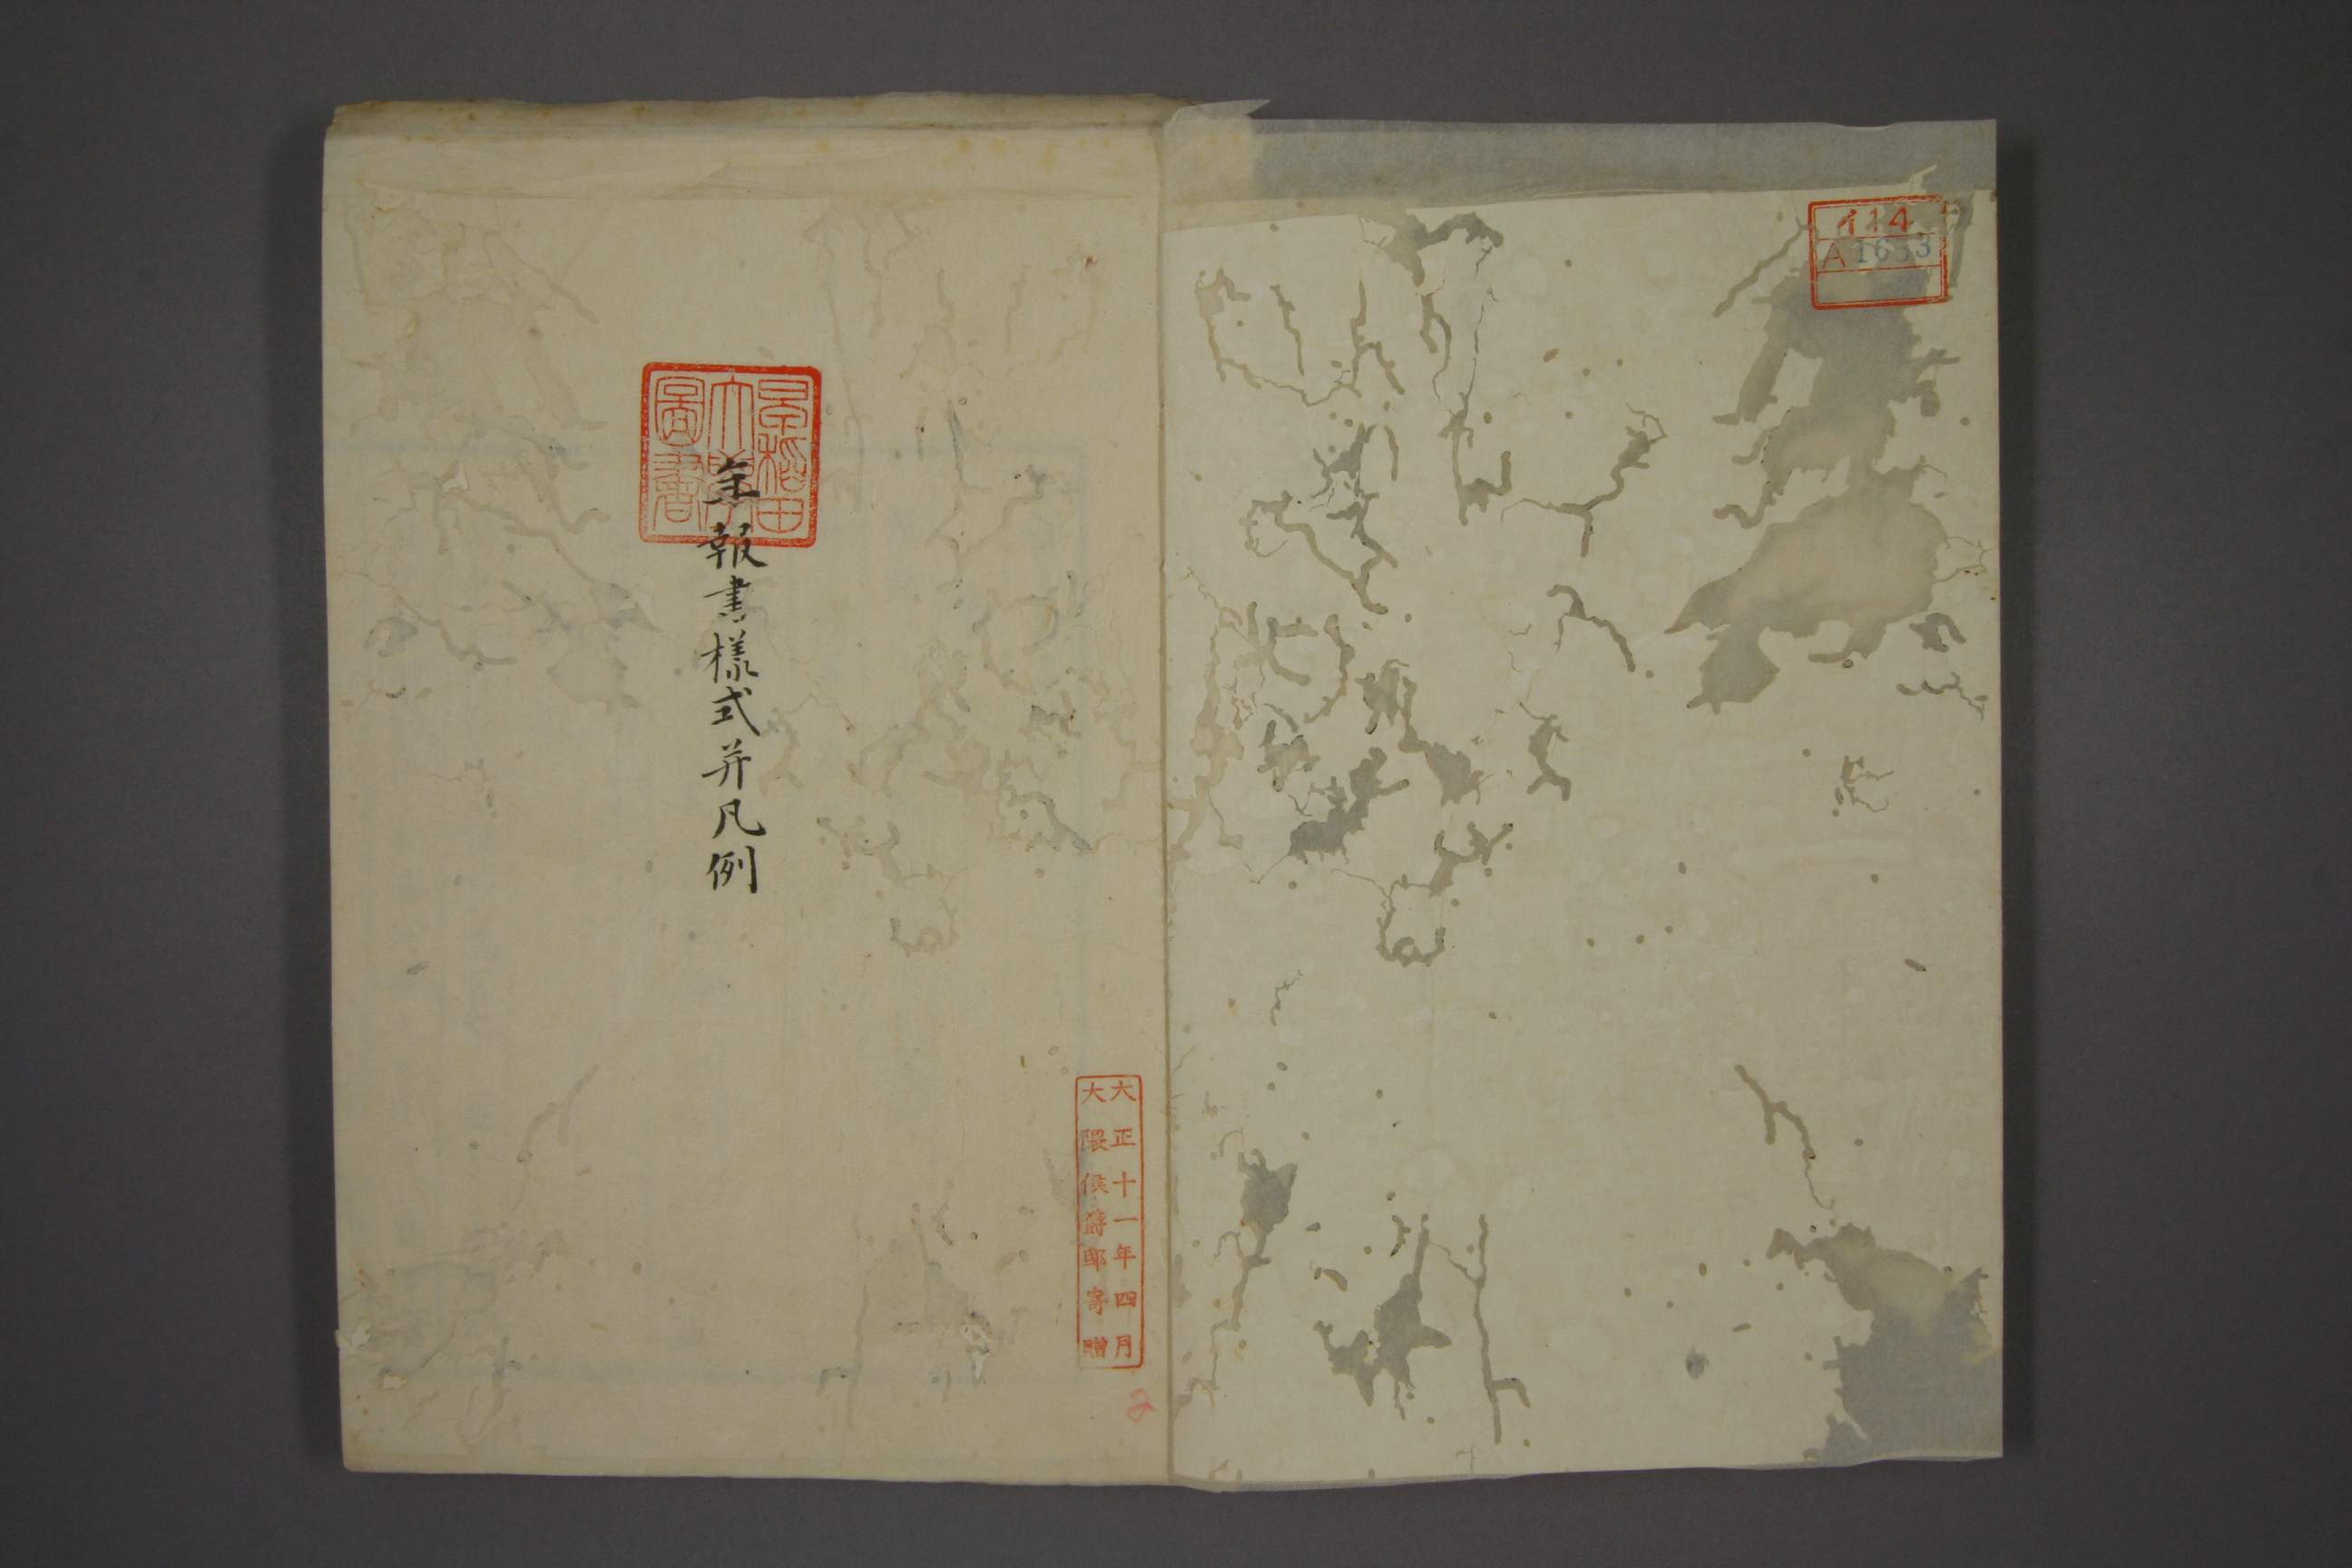 114
A 1633
大正十一年四月
大隈侯爵邸寄贈
早稲田
大學
圖書
年報書様式并凡例
2